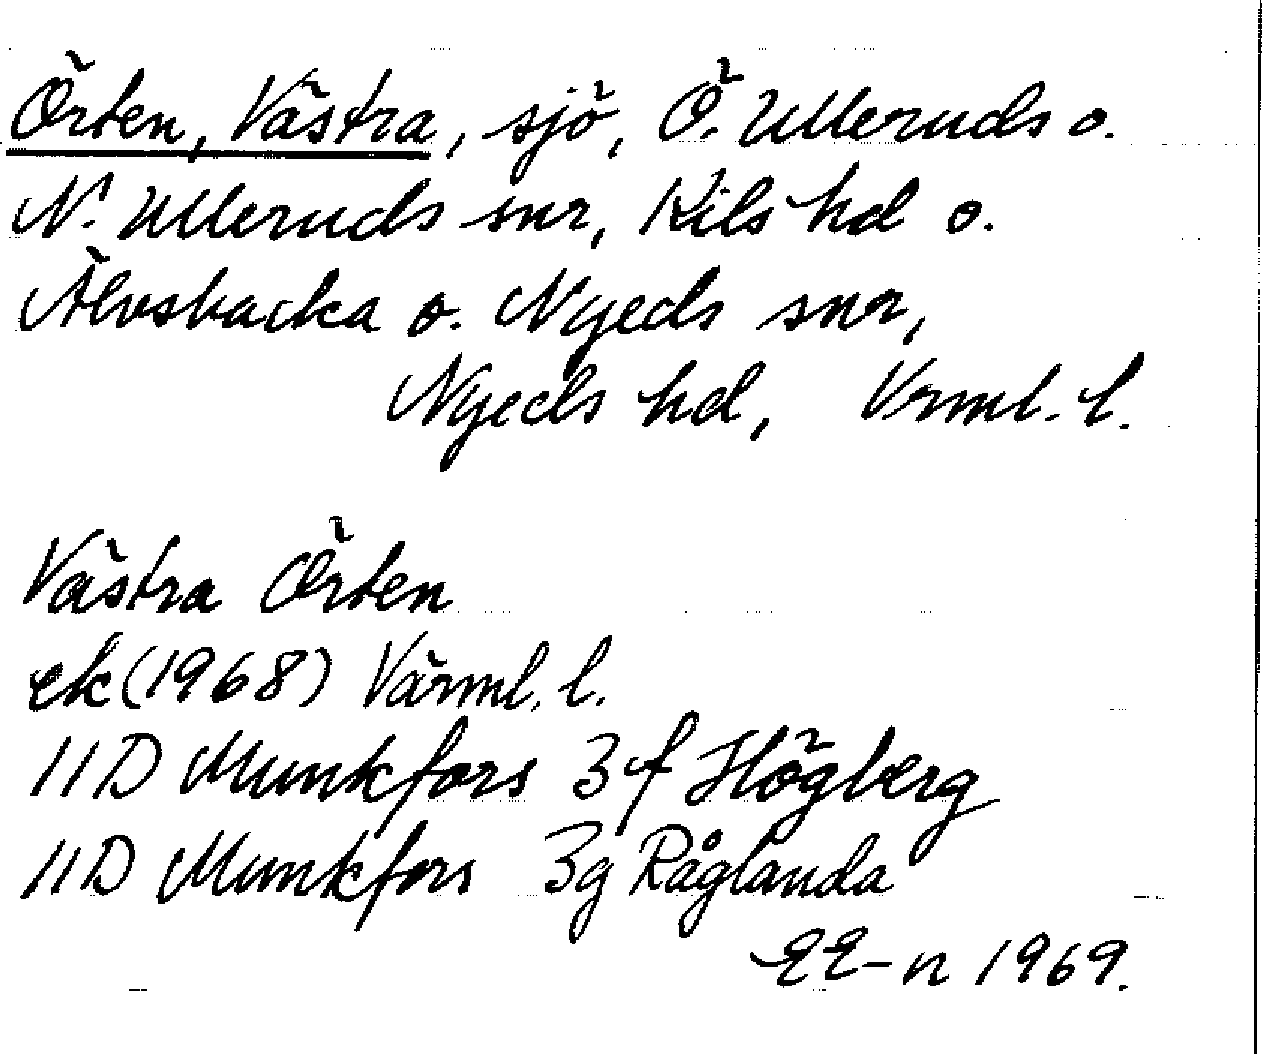 Örten, Västra, sjö, Ö. Ulleruds o.
N. Ulleruds snr, Kils hd o.
Älvsbacka o. Nyeds snr,
Nyeds hd, Vrml. l.
Västra Örten
ek (1968) Värml. l.
11D Munkfors 3f Högberg
11D Munkfors 3g Råglanda
EE-n 1969.